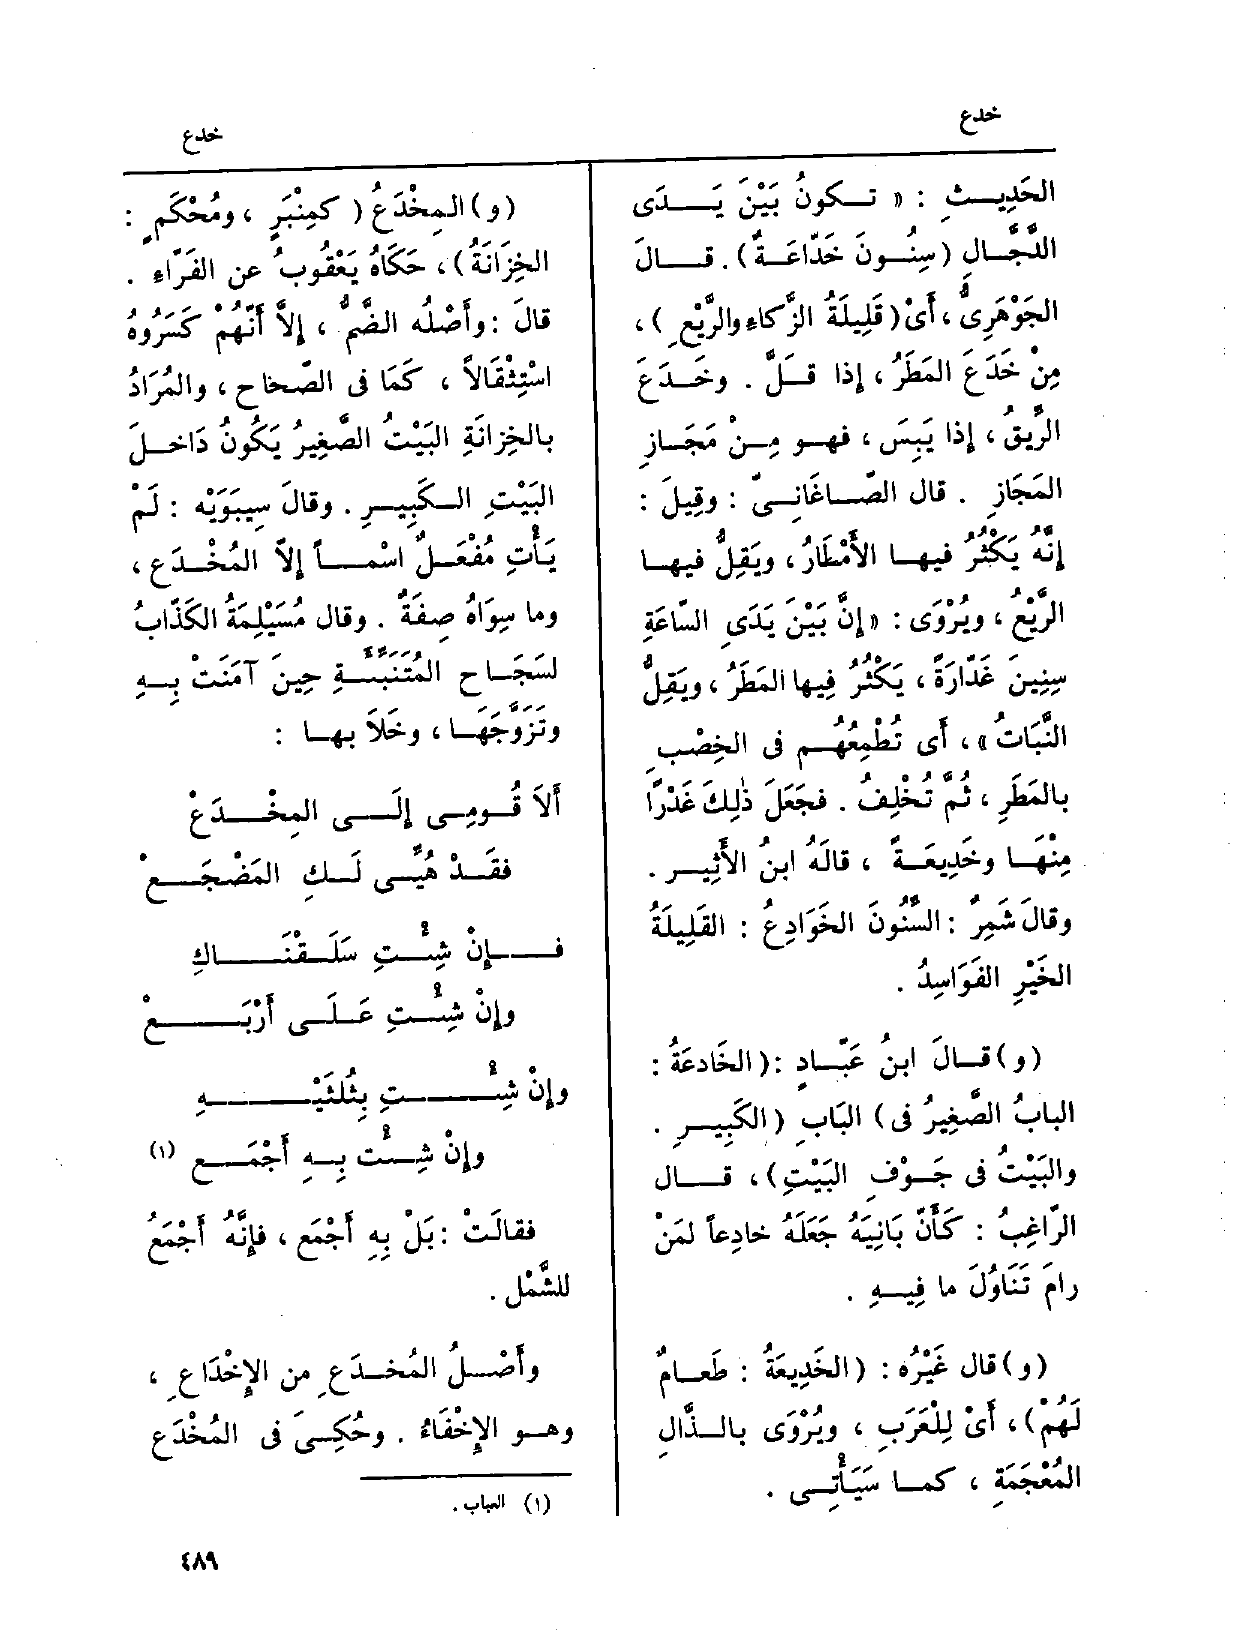 خدع
خدع
الحَدِيــثِ : « تــكونُ بَيْنَ يَــدَى
الدَّجَّــالِ (سِنُــونَ خَدّاعَــةٌ) . قــالَ
الجَوْهَرِىُّ ، أَىْ (قَلِيلَةُ الزَّكاءِ والرَّيْعِ) ،
مِنْ خَدَعَ المَطَرُ ، إِذا قَــلَّ . وخَــدَعَ
الرِّيقُ ، إِذا يَبِسَ ، فهــو مِــنْ مَجَــازِ
المَجَازِ . قال الصّــاغَانِــىّ : وقِيلَ :
إِنَّهُ يَكْثُرُ فيهــا الأَمْطَارُ ، ويَقِلُّ فيهــا
الرَّيْعُ ، ويُرْوَى : «إِنَّ بَيْنَ يَدَىِ السّاعَةِ
سِنِينَ غَدّارَةً ، يَكْثُرُ فِيها المَطَرُ ، ويَقِلُّ
النَّبَاتُ » ، أَى تُطْمِعُهُــم فى الخِصْبِ
بالمَطَرِ ، ثُمَّ تُخْلِفُ . فجَعَلَ ذٰلِكَ غَدْرًا
مِنْهَــا وخَدِيعَــةً ، قالَهُ ابنُ الأَثِيــر .
وقالَ شَمِرٌ : السِّنُونَ الخَوَادِعُ : القَلِيلَةُ
الخَيْرِ الفَوَاسِدُ .
(و) قــالَ ابنُ عَبّــادٍ : (الخَادعَةُ :
البابُ الصَّغِيرُ فى) البَابِ (الكَبِيــرِ .
والبَيْتُ فى جَــوْفِ البَيْتِ) ، قــال
الرّاغِبُ : كَأَنَّ بَانِيَهُ جَعَلَهُ خادِعاً لمَنْ
رامَ تَنَاوُلَ ما فِيــهِ .
(و) قال غَيْرُه : (الخَدِيعَةُ : طَعــامٌ
لَهُمْ) ، أَىْ لِلْعَرَبِ ، ويُرْوَى بالــذَّالِ
المُعْجَمَةِ ، كمــا سَيَأْتِــى .
(و) المِخْدَعُ ( كمِنْبَرٍ ، ومُحْكَمٍ :
الخِزَانَةُ) ، حَكَاهُ يَعْقُوبُ عن الفَرّاءِ .
قالَ : وأَصْلُه الضَّمُّ ، إِلاَّ أَنَّهُمْ كَسَرُوهُ
اسْتِثْقَالاً ، كَمَا فى الصّحاح ، والمُرَادُ
بالخِزانَةِ البَيْتُ الصَّغِيرُ يَكُونُ دَاخــلَ
البَيْتِ الــكَبِيــرِ . وقالَ سِيبَوَيْه : لَمْ
يَأْتِ مُفْعَــلٌ اسْمــاً إِلاّ المُخْــدَع ،
وما سِوَاهُ صِفَةٌ . وقال مُسَيْلِمَةُ الكَذّابُ
لسَجَــاح المُتَنَبِّئَــةِ حِينَ آمَنَتْ بِــهِ
وتَزَوَّجَهَــا ، وخَلاَ بهــا :
أَلاَ قُــومِــى إِلَــى المِخْــدَعْ
فقَــدْ هُيِّــى لَــكِ المَضْجَــعْ
فــإِنْ شِئْــتِ سَلَــقْنَــاكِ
وإِنْ شِئْــتِ عَــلَــى أَرْبَــعْ
وإِنْ شِئْــتِ بِثُلثَيْــهِ
وإِنْ شِئْــت بِــهِ أَجْمَــع (١)
فقالَتْ : بَلْ بِهِ أَجْمَع ، فإِنَّهُ أَجْمَعُ
للشَّمْلِ .
وأَصْــلُ المُخــدَعِ من الإِخْدَاعِ ،
وهــو الإِخْفَاءُ . وحُكِــىَ فى المُخْدَع
(١) العباب .
٤٨٩